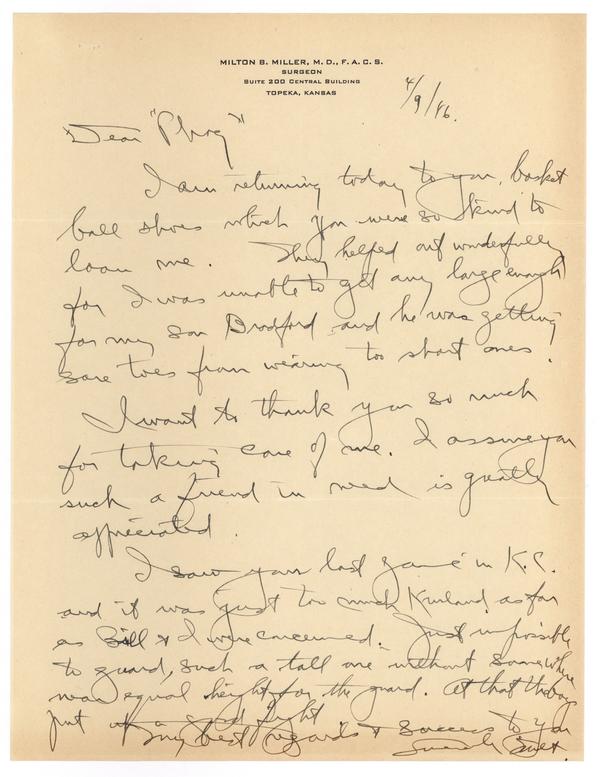 MILTON B. MILLER, M. D., F. A. C. S.
SURGEON
SUITE 200 CENTRAL BUILDING
TOPEKA, KANSAS
4/9/46.
Dear "Phog"
I am returning today to you, basket
ball shoes which you were so kind to
loan me. They helped out wonderfully
for I was unable to get any large enough
for my son Bradford and he was getting
sore toes from wearing too short ones.
I want to thank you so much
for taking care of me. I assure you
such a friend in need is greatly
appreciated.
I saw your last game in K.C.
and it was just too much Kurland as far
as Bill & I were concerned. Just impossible
to guard, such a tall one without somewhere
near equal height for the guard. At that the boys
put up a good fight
My best regards & success to you